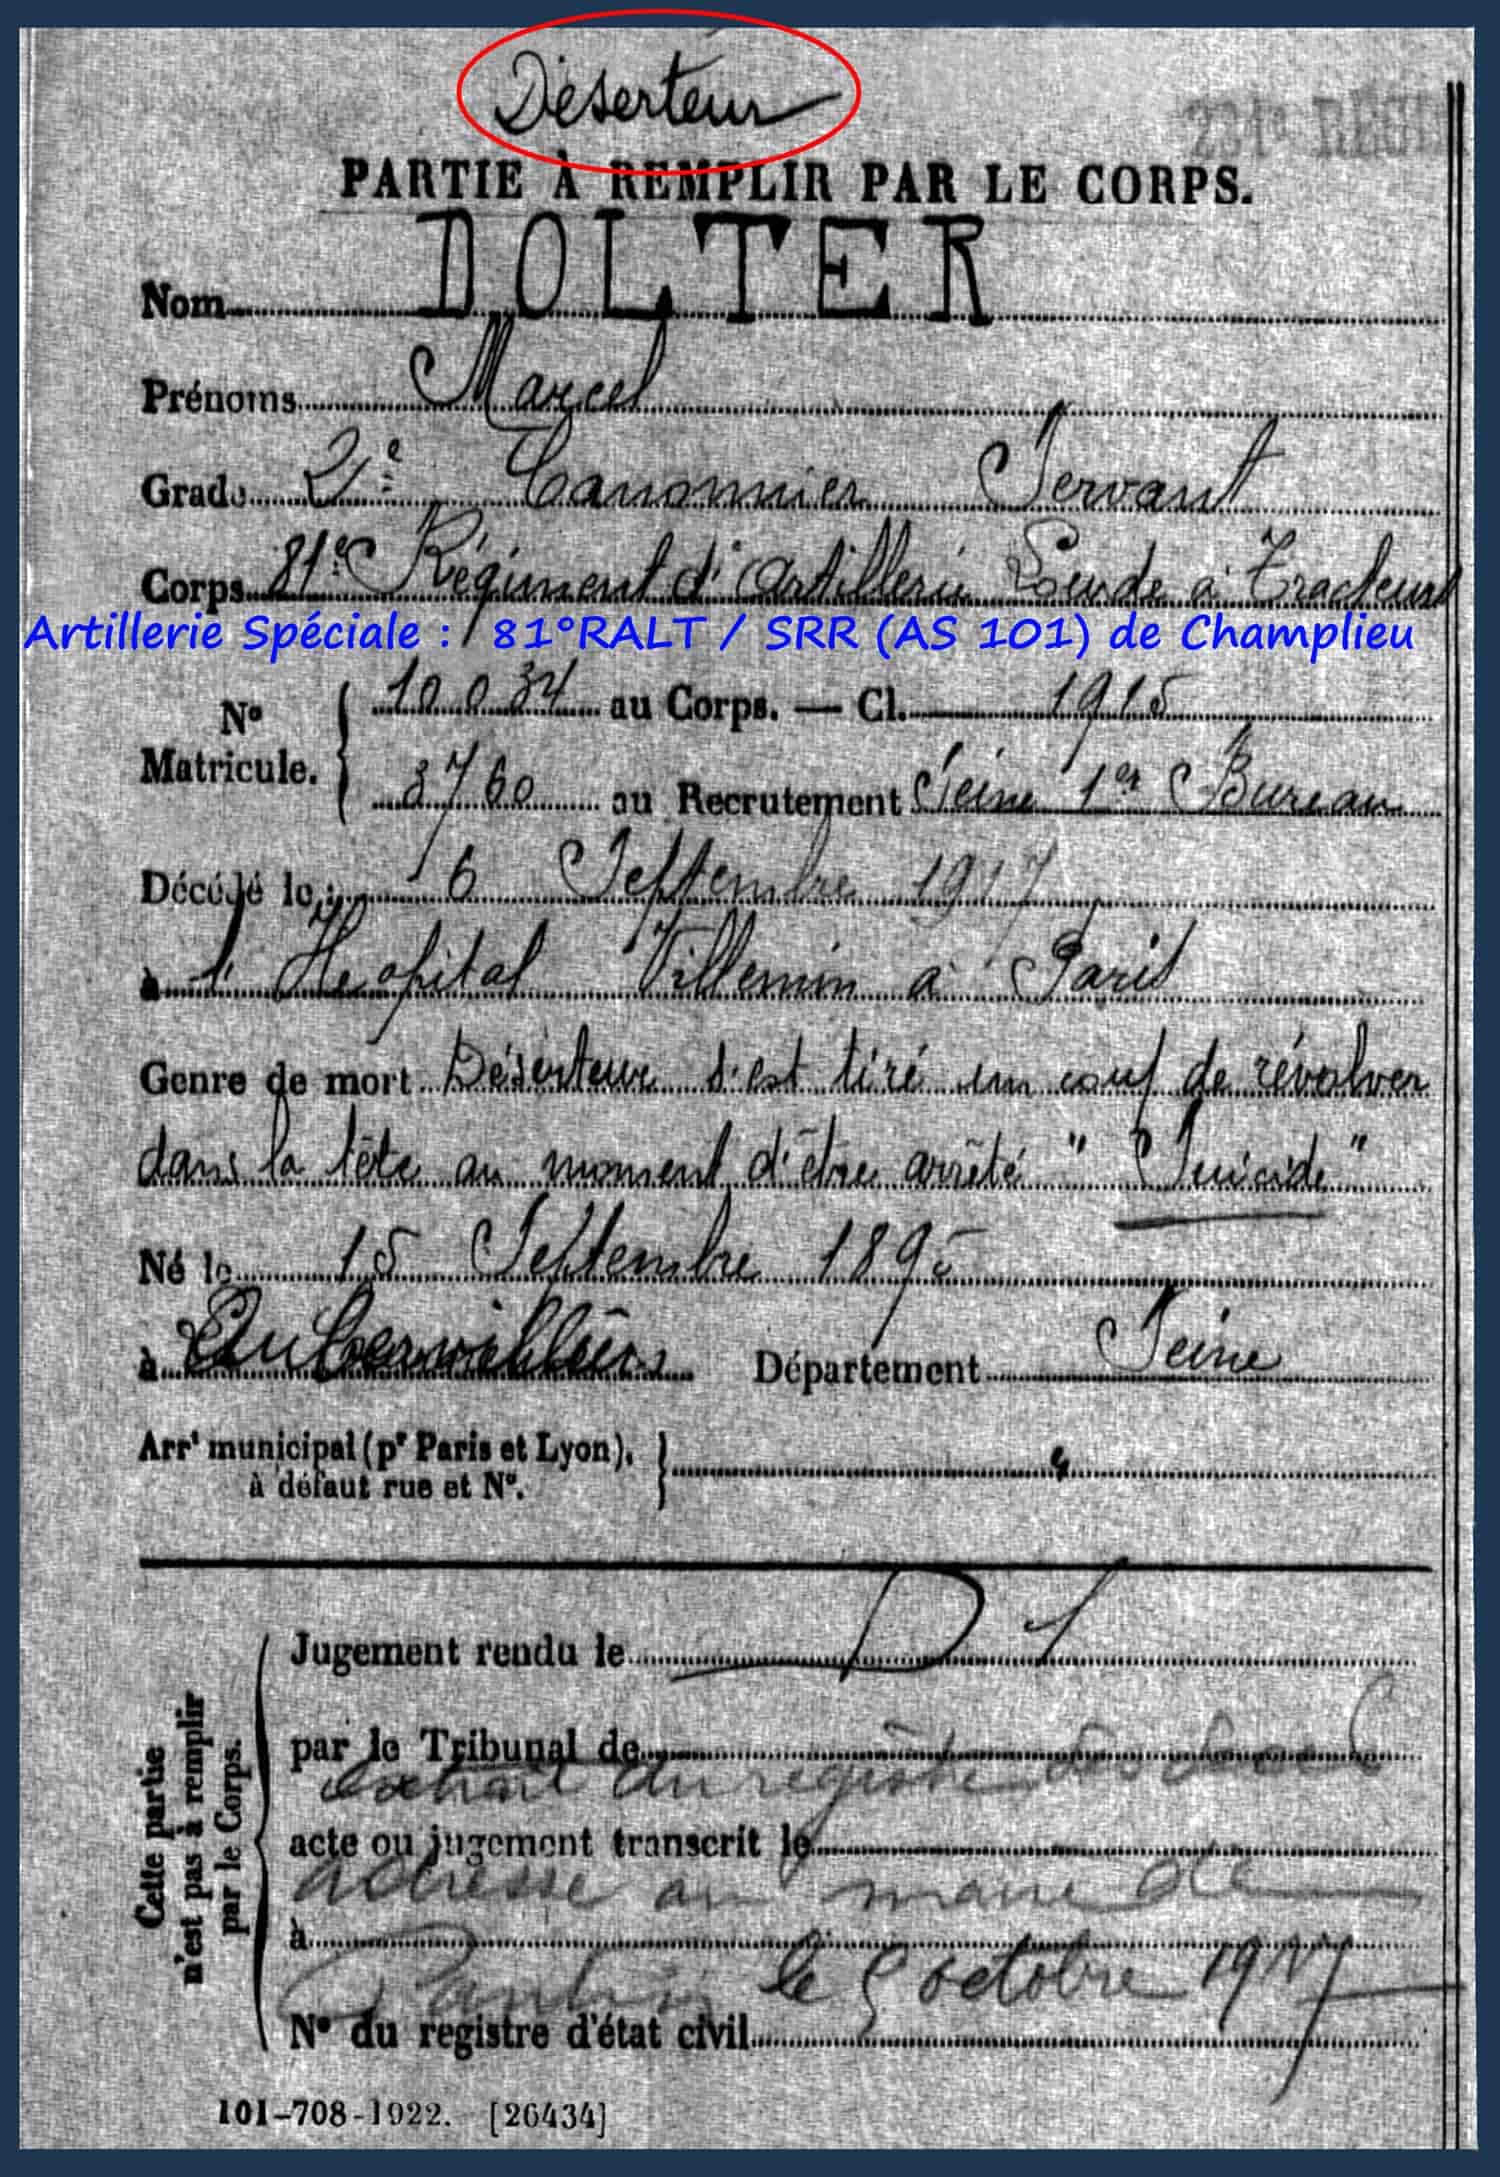 Déserteur
PARTIE À REMPLIR PAR LE CORPS.
Nom DOLTER
Prénoms Marcel
Grade 2e Canonnier Servant
Corps 81e Régiment d'Artillerie Lourde à Tracteurs
Artillerie Spéciale : 81°RALT / SRR (AS 101) de Champlieu
No Matricule. { 10.034 au Corps. — Cl. 1915
3760 au Recrutement Seine 1er Bureau
Décédé le 6 Septembre 1917
à l'Hopital Villemin à Paris
Genre de mort Déserteur s'est tiré un coup de révolver
dans la tête au moment d'être arrêté "Suicide"
Né le 15 Septembre 1895
à Aubervilliers Département Seine
Arrt municipal (pr Paris et Lyon),
à défaut rue et No.
Cette partie n'est pas à remplir par le Corps.
Jugement rendu le
par le Tribunal de
extrait du registre des décès
acte ou jugement transcrit le
adressé au maire de
à
Pantin le 5 octobre 1917
No du registre d'état civil
101-708-1922. [26434]